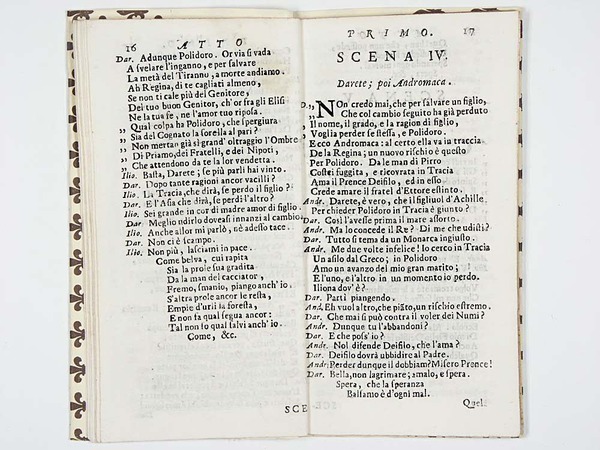 16 ATTO
Dar. Adunque Polidoro. Or via si vada
A svelare l'inganno, e per salvare
La metà del Tiranno, a morte andiamo.
Ah Regina, di te cagliati almeno,
Se non ti cale più del Genitore,
Del tuo buon Genitor, ch'or fra gli Elisi
Ne la tua fe, ne l'amor tuo riposa.
„ Qual colpa ha Polidoro, che spergiura
„ Sia del Cognato la sorella al pari?
„ Non mertan già sì grand' oltraggio l'Ombre
„ Di Priamo, dei Fratelli, e dei Nipoti,
„ Che attendono da te la lor vendetta.
Ilio. Basta, Darete; se più parli hai vinto.
Dar. Dopo tante ragioni ancor vacilli?
Ilio. La Tracia, che dirà, se perdo il figlio?
Dar. E l'Asia che dirà, se perdi l'altro?
Ilio. Sei grande in cor di madre amor di figlio.
Dar. Meglio udirlo doveasi innanzi al cambio.
Ilio. Anche allor mi parlò, nè adesso tace.
Dar. Non ci è scampo.
Ilio. Non più, lasciami in pace.
Come belva, cui rapita
Sia la prole sua gradita
Da la man del cacciator,
Fremo, smanio, piango anch' io.
S'altra prole ancor le resta,
Empie d'urli la foresta,
E non fa qual segua ancor:
Tal non so qual salvi anch' io.
Come, &c.
SCE
PRIMO. 17
SCENA IV.
Darete; poi Andromaca.
D. „ NOn credo mai, che per salvare un figlio,
„ Che col cambio seguito ha già perduto
Il nome, il grado, e la ragion di figlio,
Voglia perder se stessa, e Polidoro.
Ecco Andromaca: al certo ella va in traccia
De la Regina; un nuovo rischio è questo
Per Polidoro. Da le man di Pirro
Costei fuggita, e ricovrata in Tracia
Ama il Prence Deifilo, ed in esso
Crede amare il fratel d'Ettore estinto.
Andr. Darete, è vero, che il figliuol d'Achille
Per chieder Polidoro in Tracia è giunto?
Dar. Così l'avesse prima il mare assorto.
Andr. Ma lo concede il Re? Di me che udisti?
Dar. Tutto si tema da un Monarca ingiusto.
Andr. Me due volte infelice! Io cerco in Tracia
Un asilo dal Greco; in Polidoro
Amo un avanzo del mio gran marito;
E l'uno, e l'altro in un momento io perdo.
Iliona dov' è?
Dar. Partì piangendo.
And. Eh vuol altro, che pianto, un rischio estremo.
Dar. Che mai si può contra il voler dei Numi?
Andr. Dunque tu l'abbandoni?
Dar. E che poss' io?
Andr. Nol difende Deifilo, che l'ama?
Dar. Deifilo dovrà ubbidire al Padre.
Andr. Perder dunque il dobbiam? Misero Prence!
Dar. Bella, non lagrimare; amalo, e spera.
Spera, che la speranza
Balsamo è d'ogni mal.
Quel